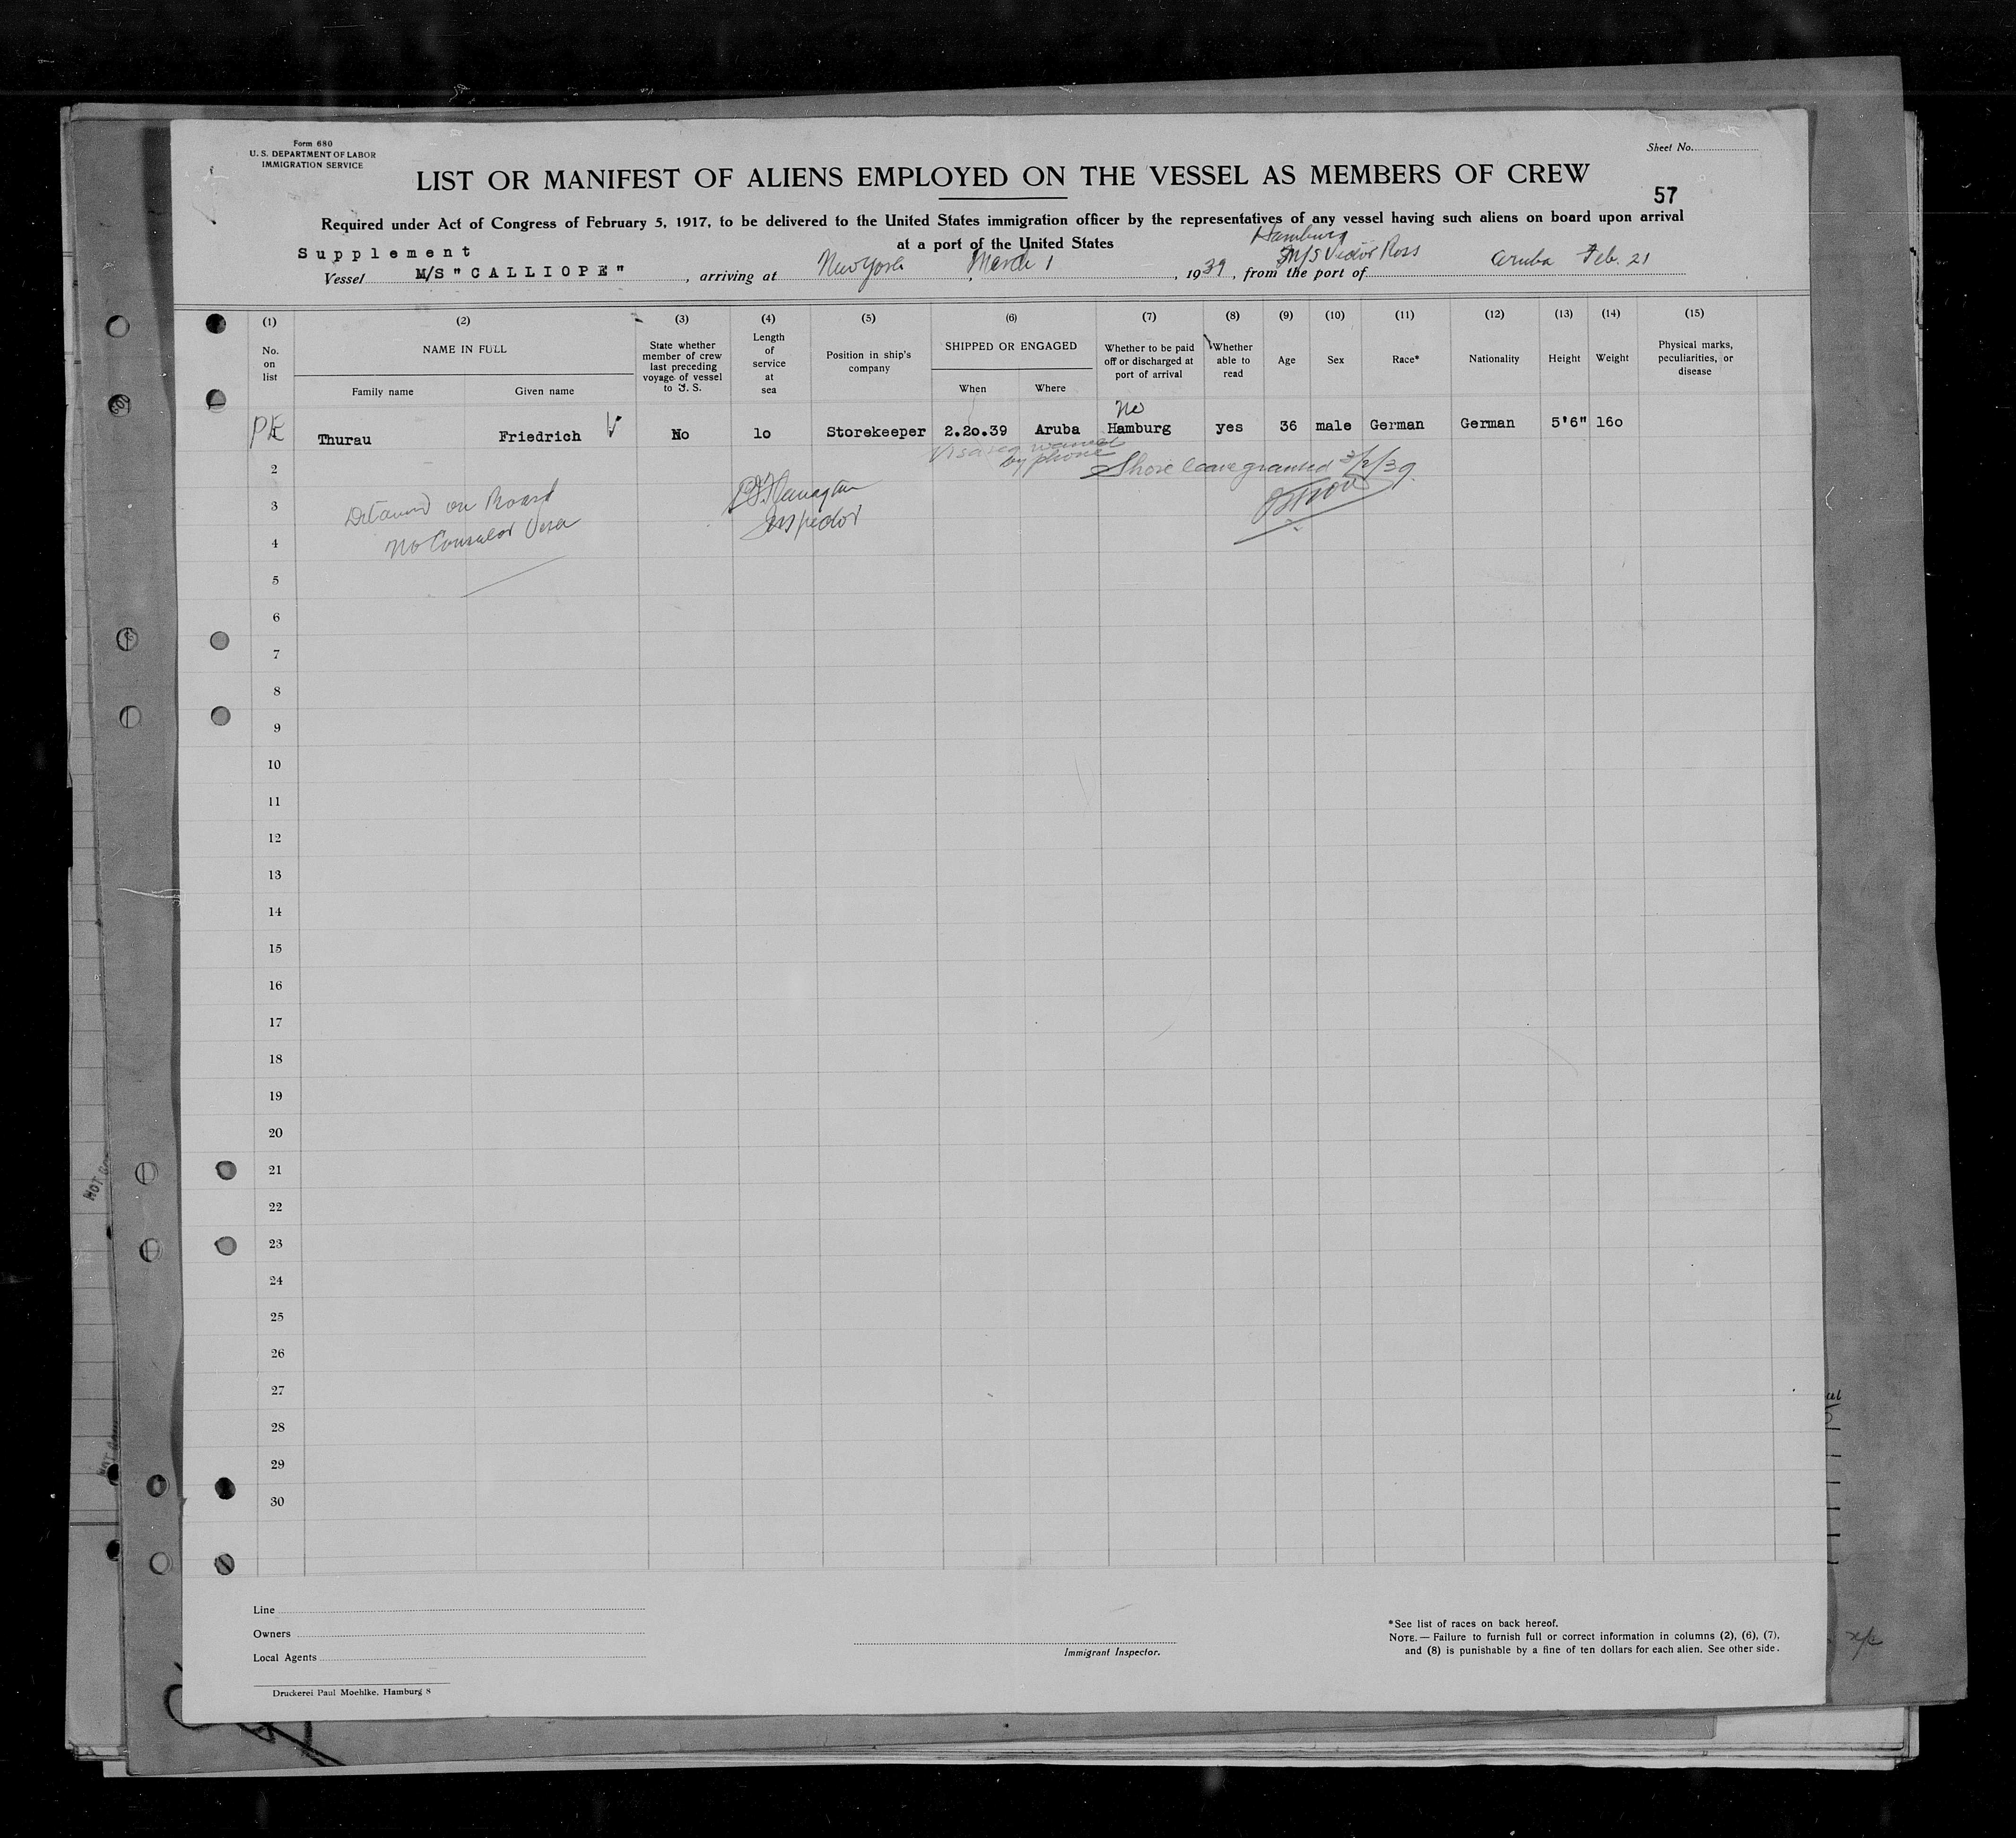 Form 680
U. S. DEPARTMENT OF LABOR
IMMIGRATION SERVICE
Sheet No.
LIST OR MANIFEST OF ALIENS EMPLOYED ON THE VESSEL AS MEMBERS OF CREW
57
Required under Act of Congress of February 5, 1917, to be delivered to the United States immigration officer by the representatives of any vessel having such aliens on board upon arrival
at a port of the United States
Hamburg
Supplement
M/S Victor Ross
Vessel M/S "CALLIOPE", arriving at New York, March 1, 1939, from the port of Aruba Feb. 21
(1) (2) (3) (4) (5) (6) (7) (8) (9) (10) (11) (12) (13) (14) (15)
No. on list
NAME IN FULL
Family name
Given name
State whether member of crew last preceding voyage of vessel to U. S.
Length of service at sea
Position in ship's company
SHIPPED OR ENGAGED
When
Where
Whether to be paid off or discharged at port of arrival
Whether able to read
Age
Sex
Race*
Nationality
Height
Weight
Physical marks, peculiarities, or disease
No
Thurau Friedrich No 10 Storekeeper 2.20.39 Aruba Hamburg yes 36 male German German 5'6" 160
by phone
Shore leave granted 3/2/39
Detained on Board
No Consular Visa
Inspector
2
3
4
5
6
7
8
9
10
11
12
13
14
15
16
17
18
19
20
21
22
23
24
25
26
27
28
29
30
Line
Owners
Local Agents
Immigrant Inspector.
*See list of races on back hereof.
NOTE.— Failure to furnish full or correct information in columns (2), (6), (7),
and (8) is punishable by a fine of ten dollars for each alien. See other side.
Druckerei Paul Moehlke, Hamburg 8